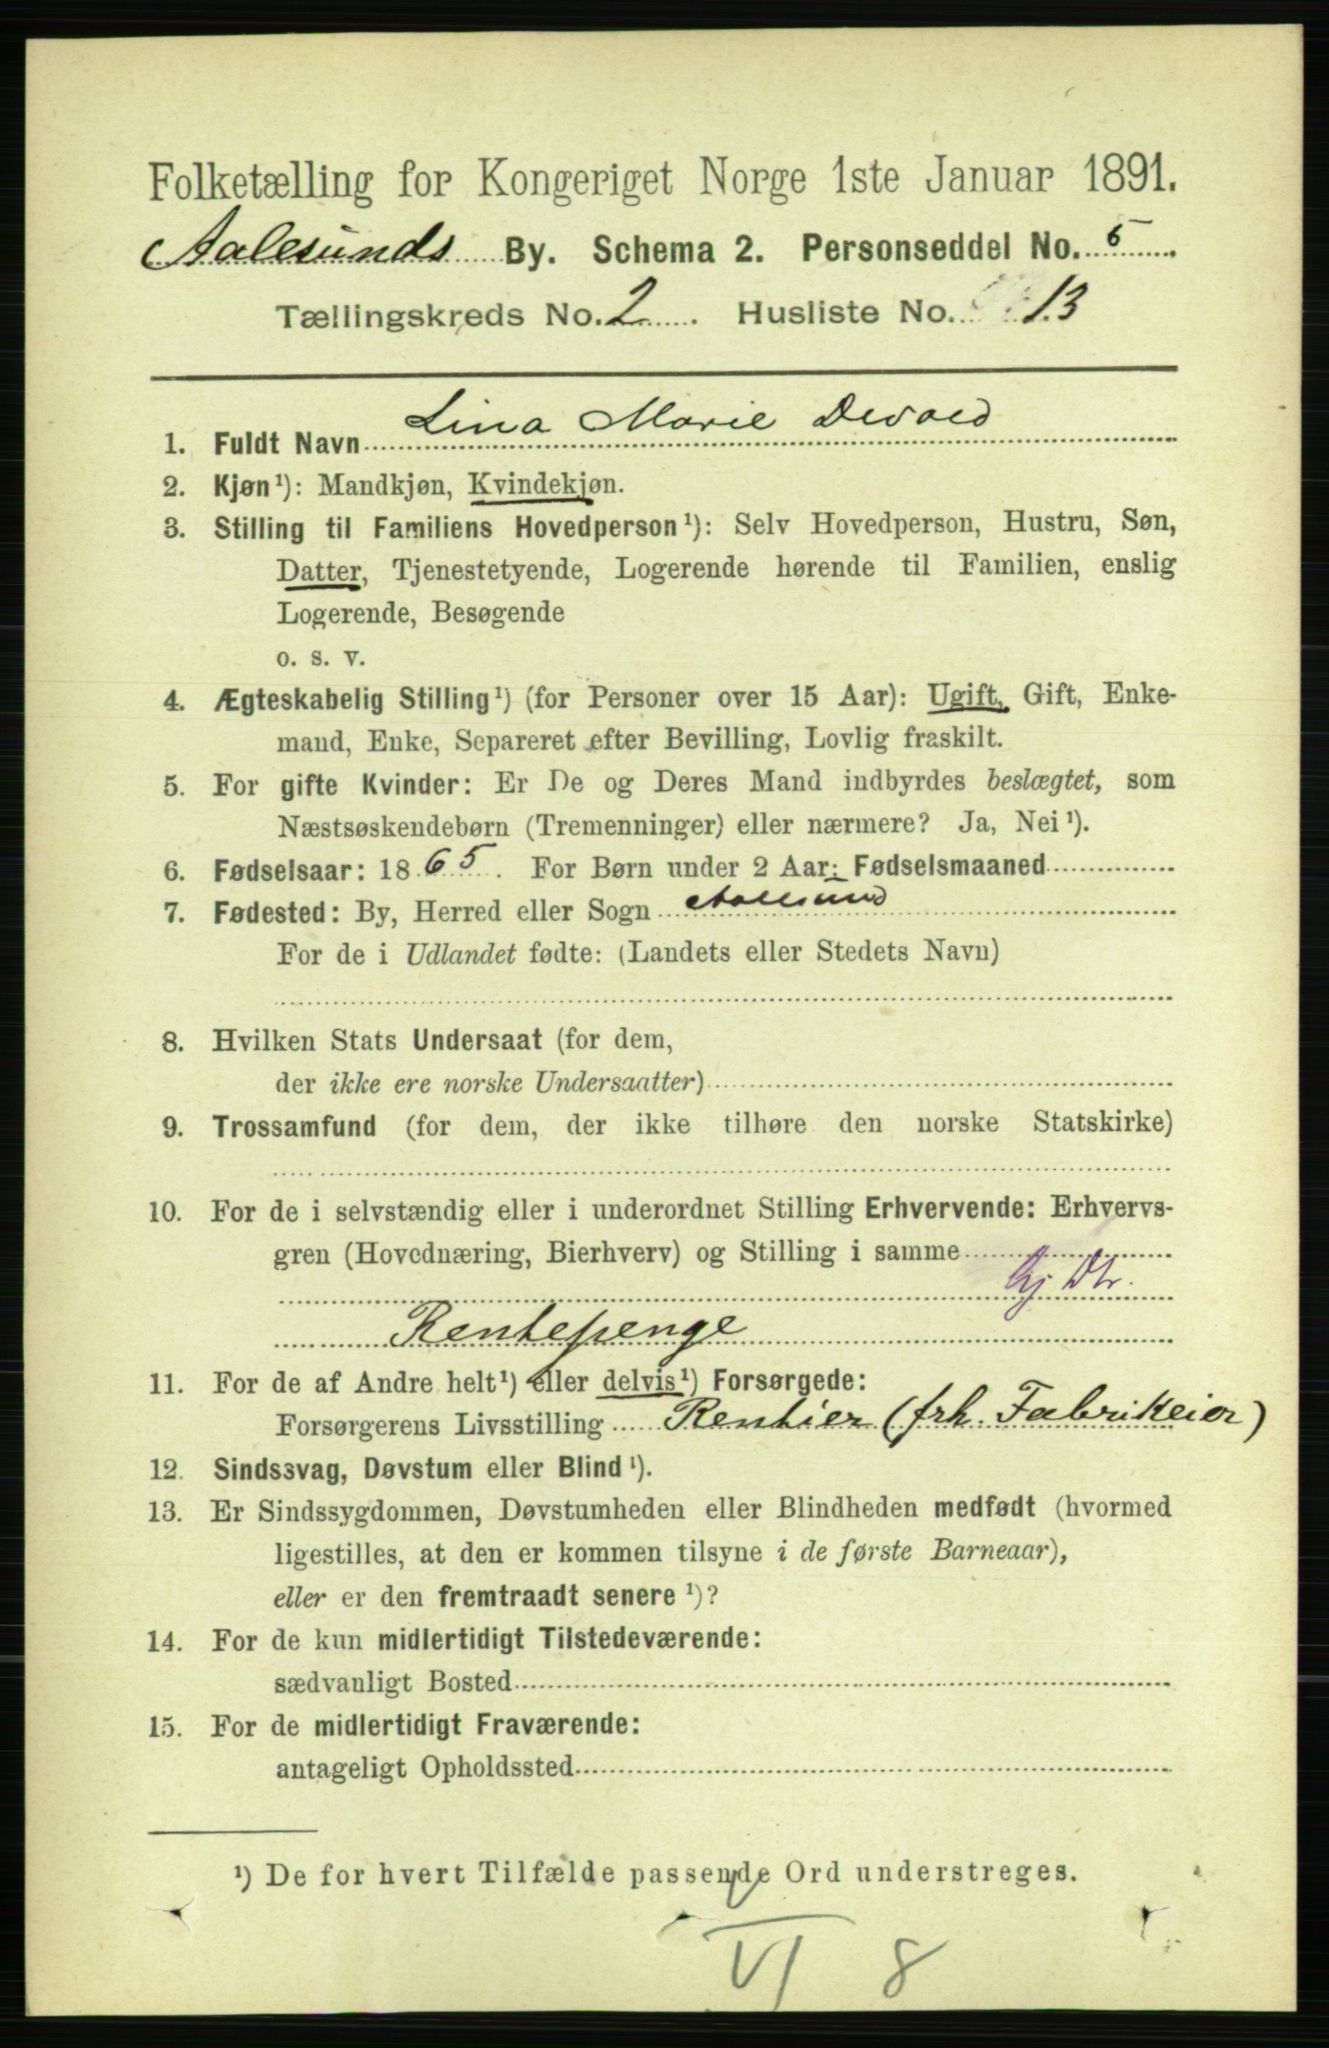 Folketælling for Kongeriget Norge 1ste Januar 1891.
Aalesunds By. Schema 2. Personseddel No. 5
Tællingskreds No. 2 Husliste No. 13
1. Fuldt Navn Lina Marie Devold
2. Kjøn¹): Mandkjøn, Kvindekjøn.
3. Stilling til Familiens Hovedperson¹): Selv Hovedperson, Hustru, Søn,
Datter, Tjenestetyende, Logerende hørende til Familien, enslig
Logerende, Besøgende
o. s. v.
4. Ægteskabelig Stilling¹) (for Personer over 15 Aar): Ugift, Gift, Enke-
mand, Enke, Separeret efter Bevilling, Lovlig fraskilt.
5. For gifte Kvinder: Er De og Deres Mand indbyrdes beslægtet, som
Næstsøskendebørn (Tremenninger) eller nærmere? Ja, Nei¹).
6. Fødselsaar: 1865. For Børn under 2 Aar: Fødselsmaaned
7. Fødested: By, Herred eller Sogn Aalesund
For de i Udlandet fødte: (Landets eller Stedets Navn)
8. Hvilken Stats Undersaat (for dem,
der ikke ere norske Undersaatter)
9. Trossamfund (for dem, der ikke tilhøre den norske Statskirke)
10. For de i selvstændig eller i underordnet Stilling Erhvervende: Erhvervs-
gren (Hovednæring, Bierhverv) og Stilling i samme
Rentepenge
11. For de af Andre helt¹) eller delvis¹) Forsørgede:
Forsørgerens Livsstilling Rentier (frh. Fabrikeier)
12. Sindssvag, Døvstum eller Blind¹).
13. Er Sindssygdommen, Døvstumheden eller Blindheden medfødt (hvormed
ligestilles, at den er kommen tilsyne i de første Barneaar),
eller er den fremtraadt senere¹)?
14. For de kun midlertidigt Tilstedeværende:
sædvanligt Bosted
15. For de midlertidigt Fraværende:
antageligt Opholdssted
¹) De for hvert Tilfælde passende Ord understreges.
VI 8